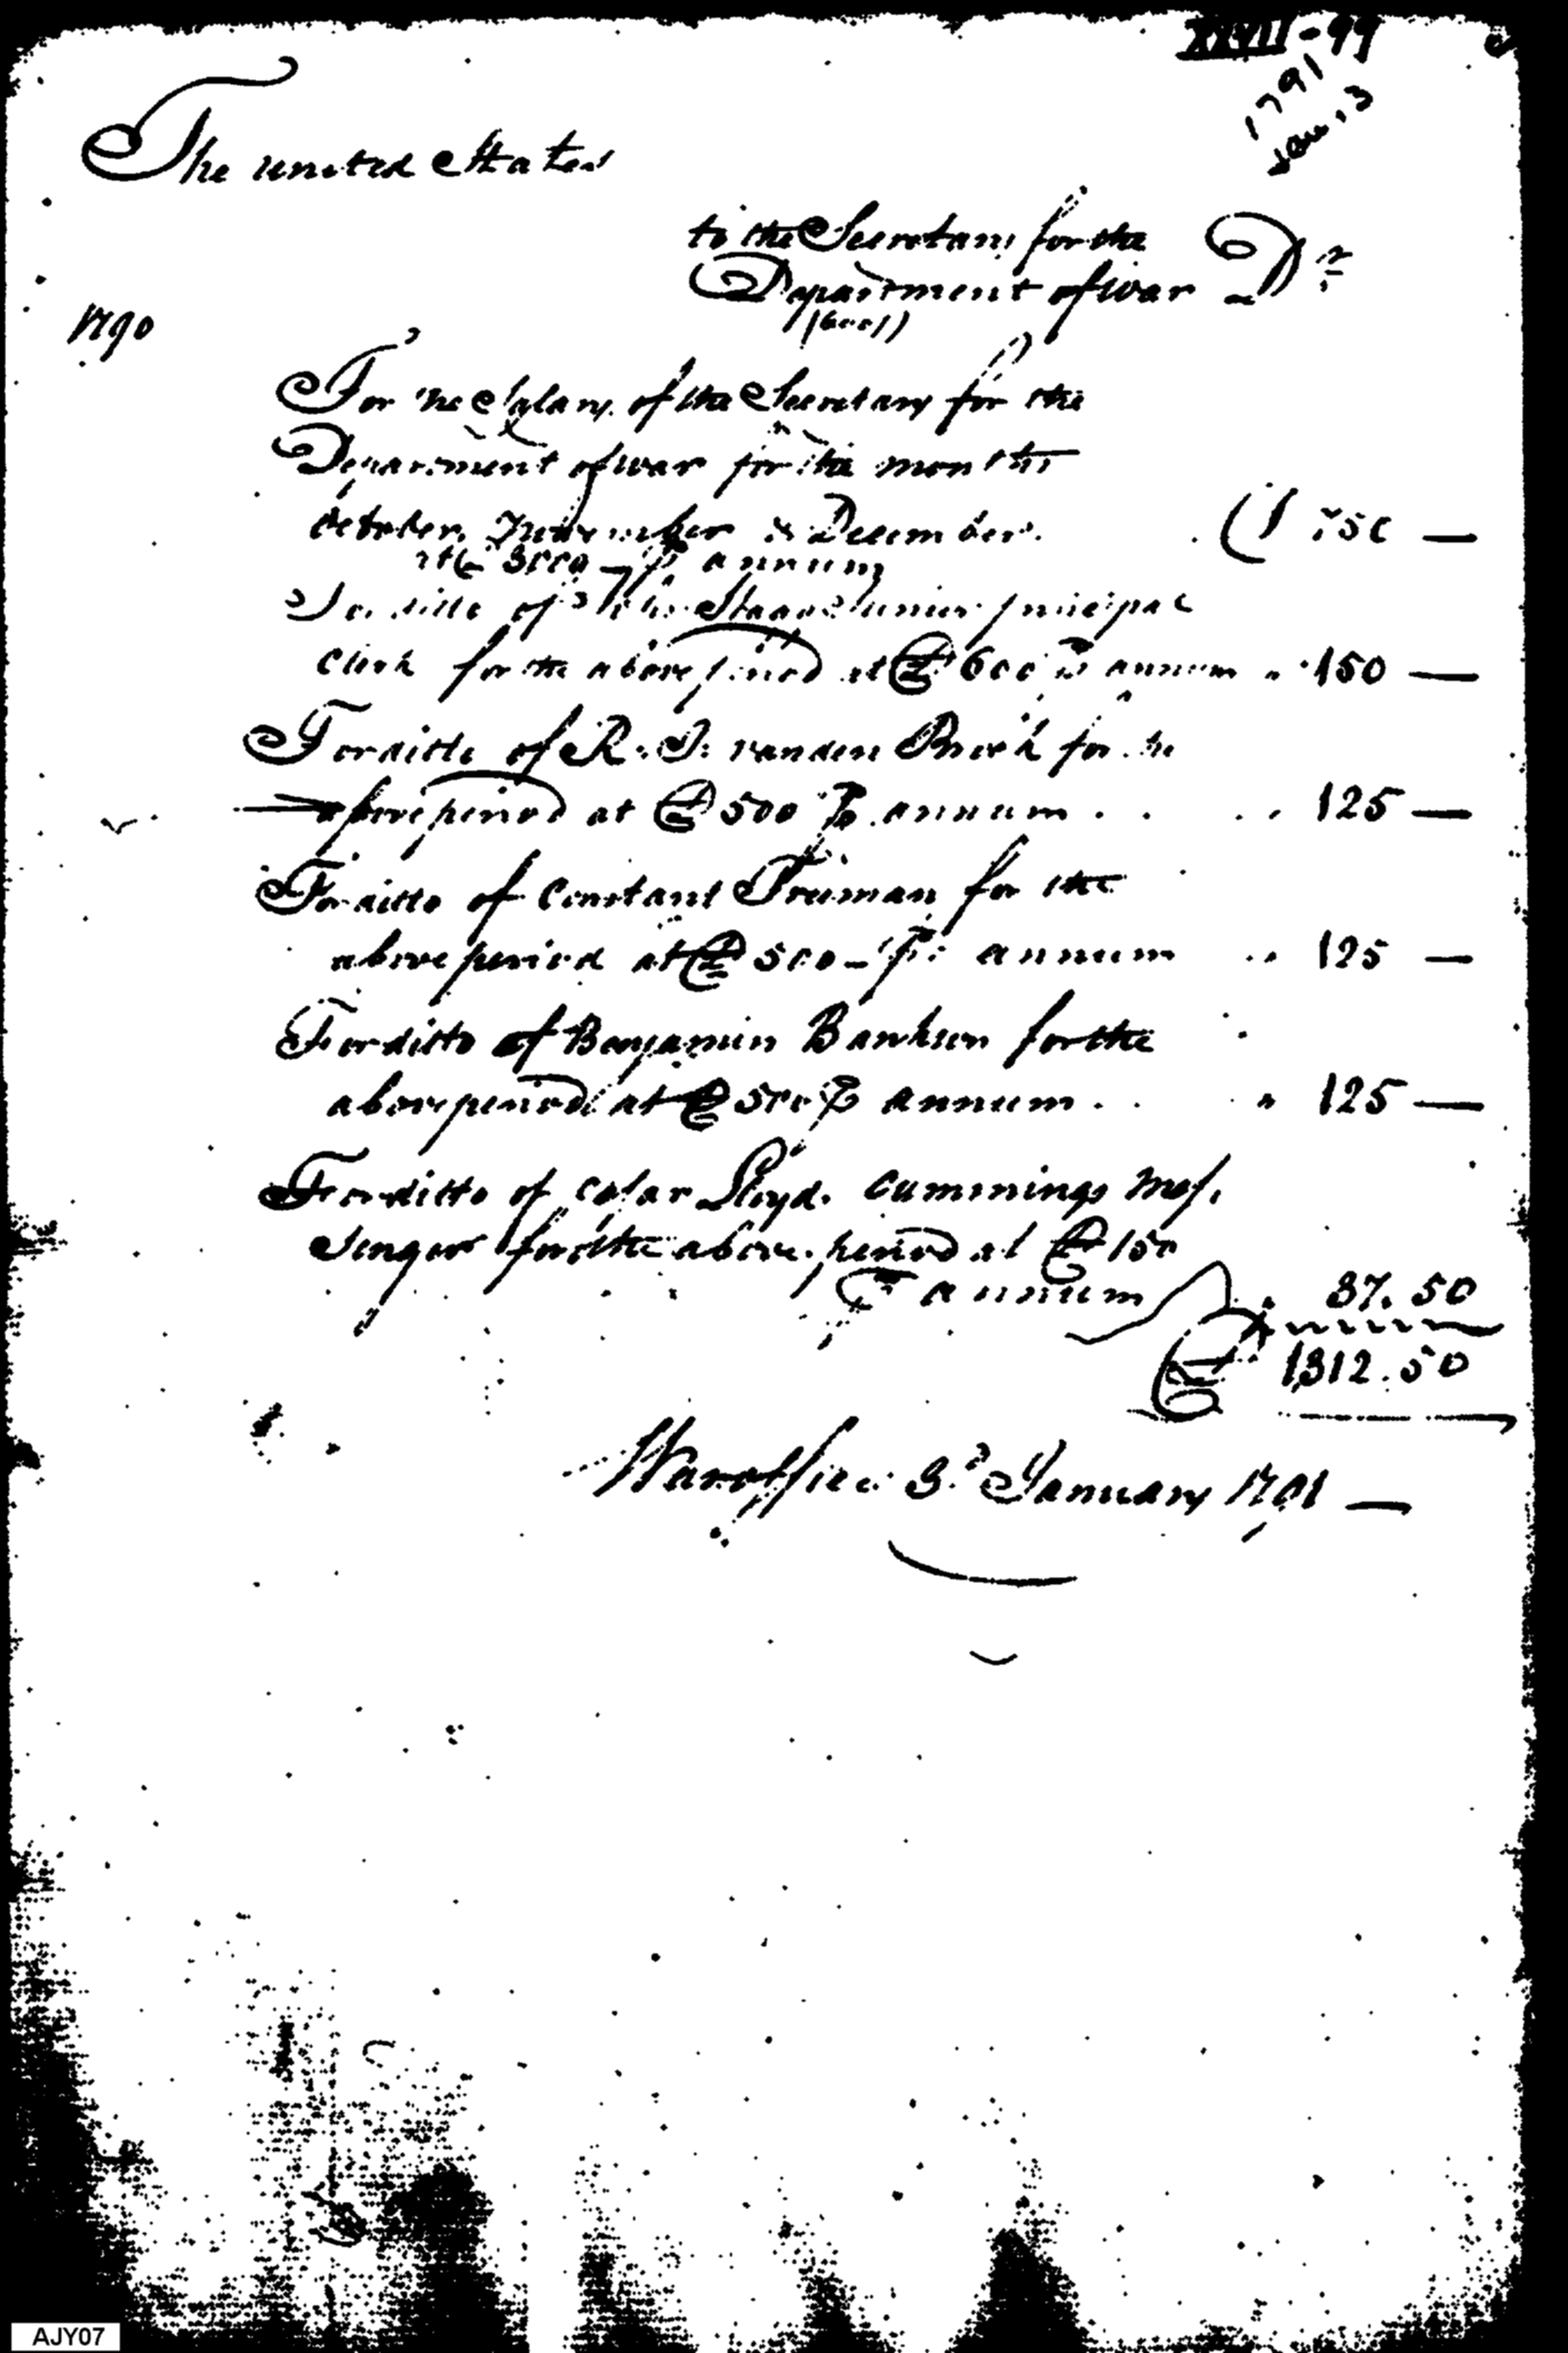 XXVII-99
1791
Jan. 13
The United States
to the Secretary for the
Department of war Dr
1790
For the Salary of the Secretary for the
Department of war for the months
October, November & December.
at 3000 - ⅌ annum
750 —
For ditto of John Stagg Junior principal
Clerk for the above period at 600 ⅌ annum 150 —
For ditto of R. J. vanden Broek for the
above period at 500 ⅌ annum . . . . 125 —
For ditto of Constant Freeman for the
above period at 500 - ⅌ annum .. 125 —
For ditto of Benjamin Bankson for the
above period at 500 ⅌ annum . . 125 —
For ditto of Cesar Lloyd. Cummings Mes.
senger for the above period at 150
⅌ annum 37. 50
1312. 50
War office 3d January 1791 —
AJY07